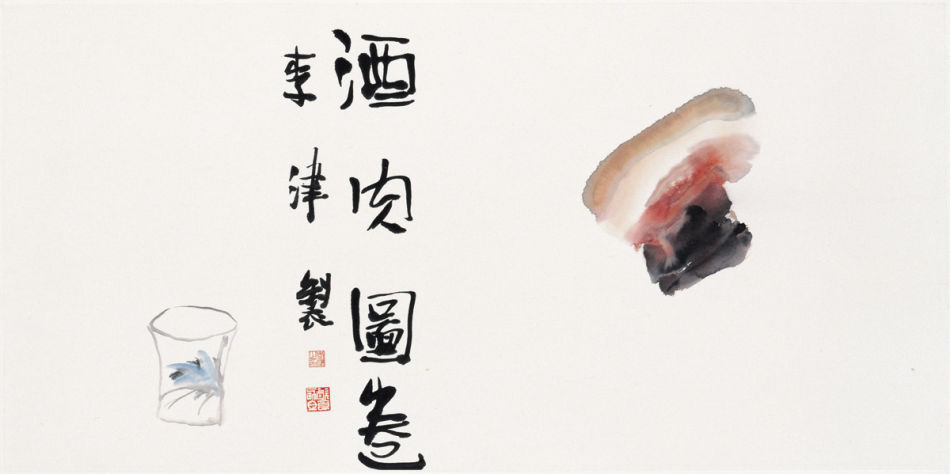 酒肉圖卷
李津製